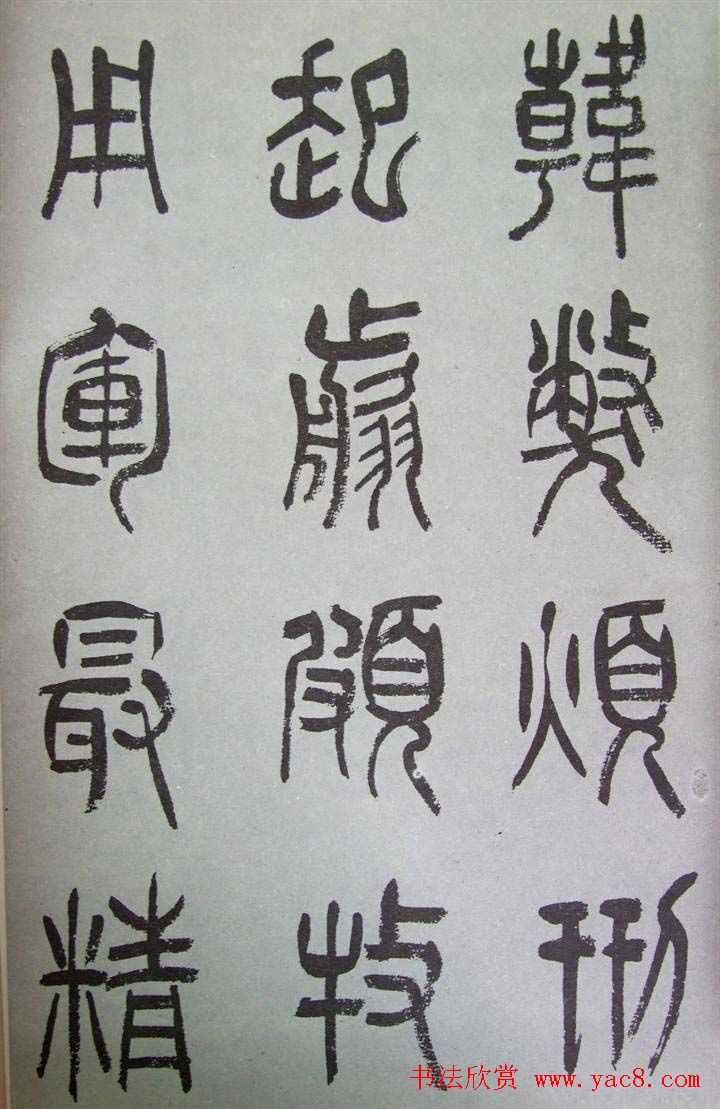 韓弊煩刑
起翦頗牧
用軍最精
书法欣赏 www.yac8.com